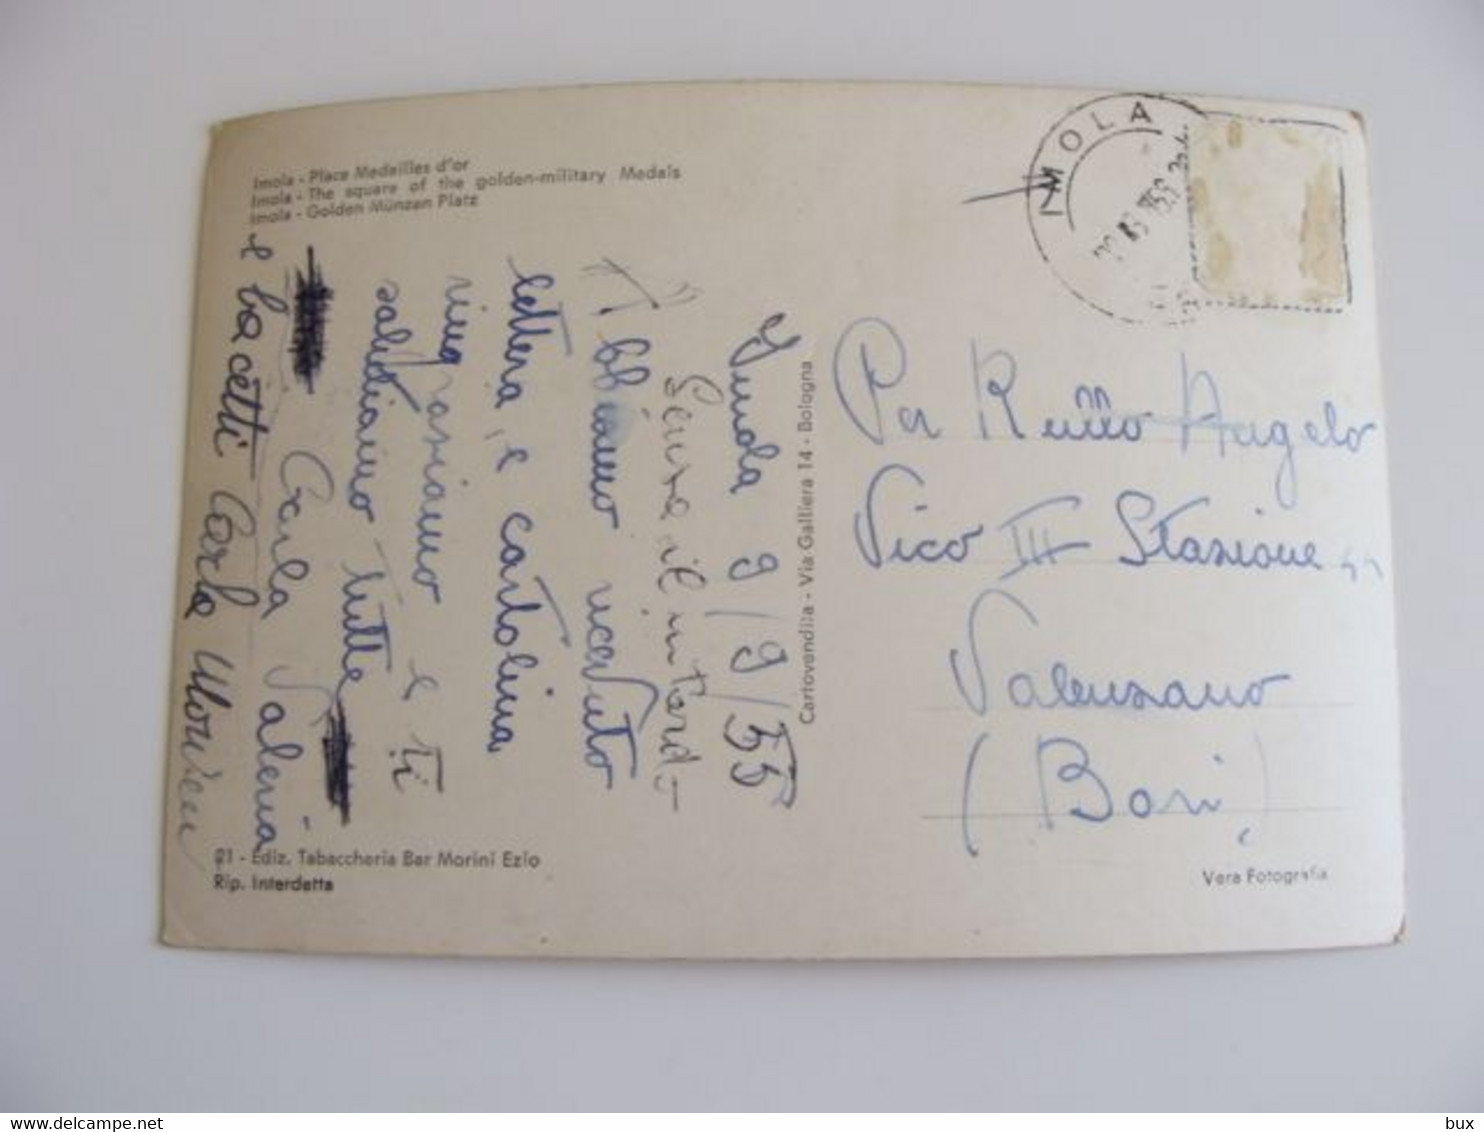 Imola - Place Medailles d'or
Imola - The square of the golden-military Medals
Imola - Golden Münzen Platz
IMOLA
Imola 9/9/55
Scusa il ritardo
Abbiamo ricevuto
lettera, e cartolina
ringrasiamo e ti
salutiamo tutte
Carla Valeria
e bacetti Carla
Cartovendita - Via Galliera 14 - Bologna
Per Rullo Angelo
Vico III Stasione
Valensano
(Bari)
21 - Ediz. Tabaccheria Bar Morini Ezio
Rip. Interdetta
Vera Fotografia
delcampe.net
bux